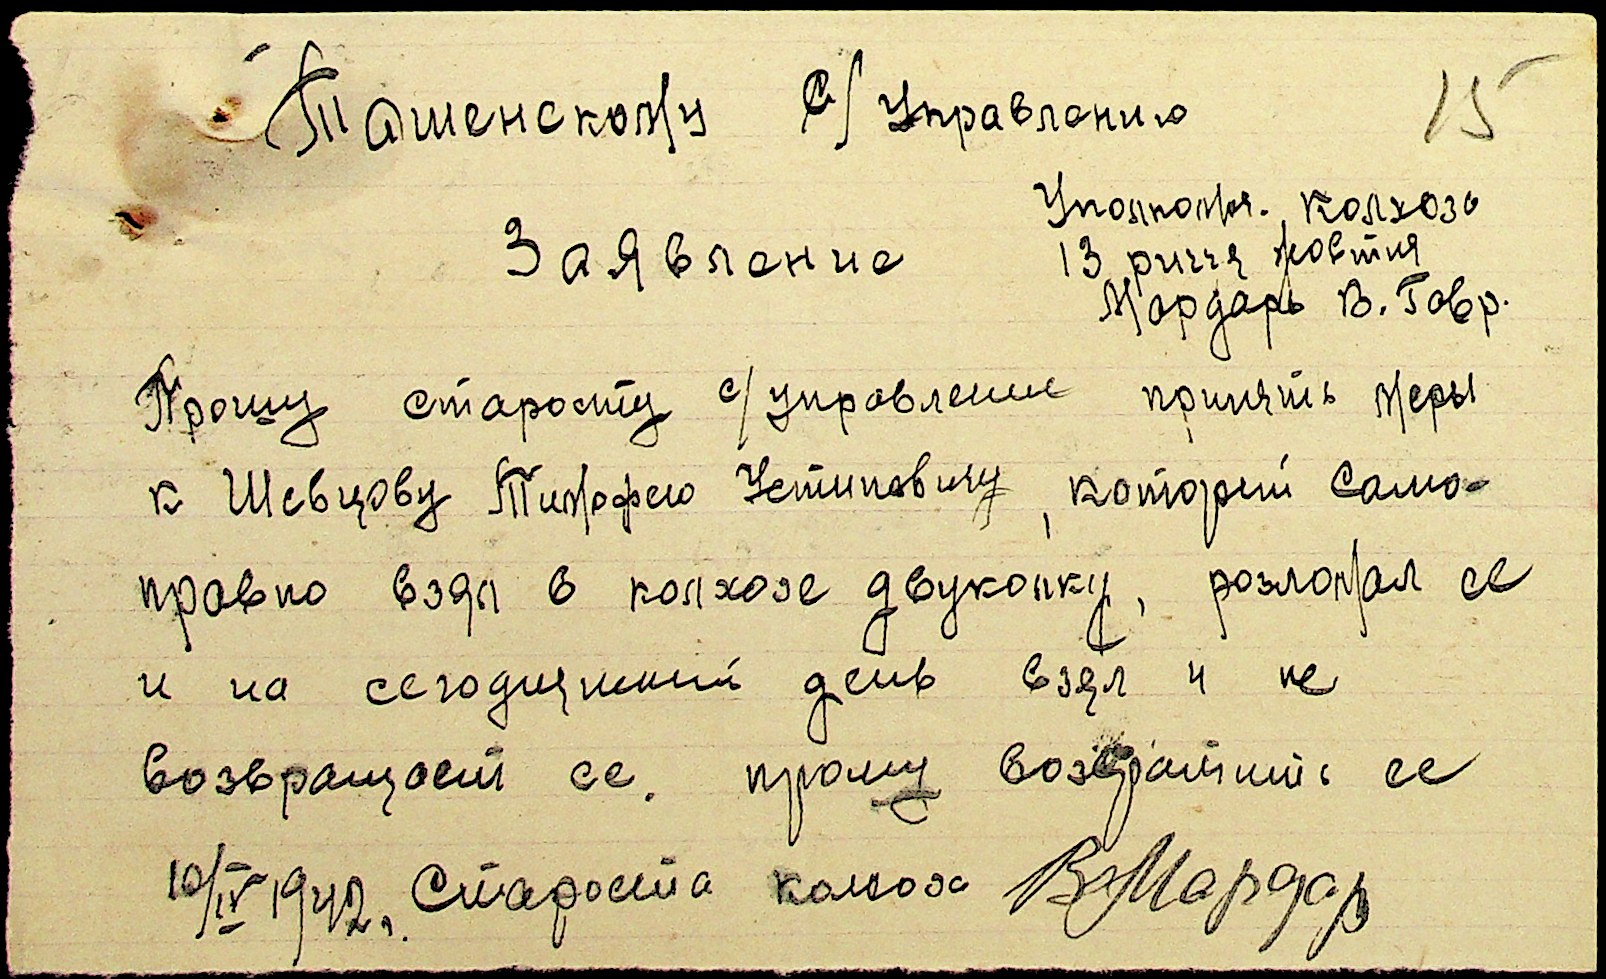 Ташенскому С/Управлению
15
Уполном. колхоза
13 риччя жовтня
Мордарь В. Гавр.
Заявление
Прошу старосту с/управление принять меры
к Шевцову Тимофею Устиновичу, который само-
правно взял в колхозе двуколку, розломал ее
и на сегодняшний день взял и не
возвращает ее. прошу возвратить ее
10/IV 1942г. Староста колхоза ВМордарь